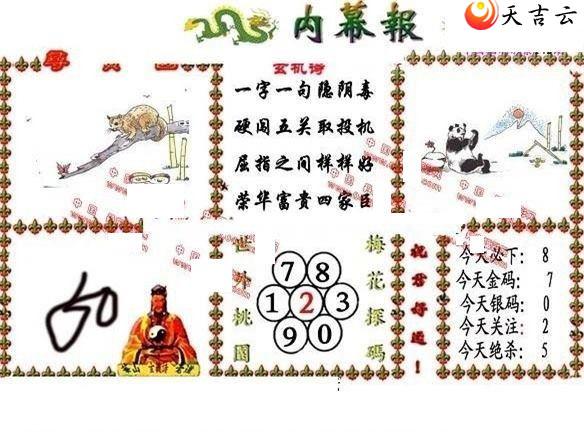 天吉云
内幕報
玄机诗
一字一句隐阴毒
硬闯五关取投机
屈指之间样样好
荣华富贵四家臣
世外桃園
7 8
1 2 3
9 0
梅花探碼
祝君好运！
今天必下： 8
今天金码： 7
今天银码： 0
今天关注： 2
今天绝杀： 5